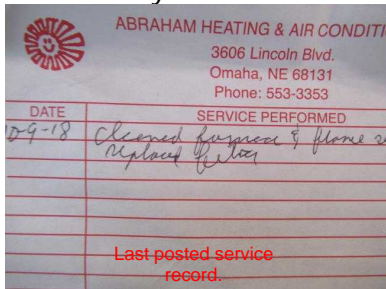 ABRAHAM HEATING & AIR CONDITI
3606 Lincoln Blvd.
Omaha, NE 68131
Phone: 553-3353
DATE SERVICE PERFORMED
10-9-18 Cleaned furnace & flame
replaced filter
Last posted service
record.